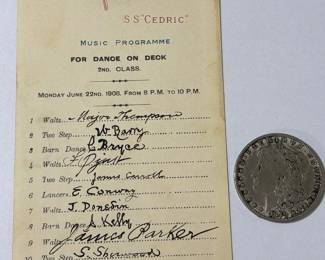 SS "CEDRIC"
MUSIC PROGRAMME
FOR DANCE ON DECK
2ND. CLASS.
MONDAY JUNE 22ND. 1908. FROM 8 P.M. TO 10 P.M.
1 Waltz Major Thompson
2 Two Step W. Barry
3 Barn Dance Bryce
4 Waltz
5 Two Step James Carroll
6 Lancers E. Conway
7 Waltz J. Donedin
8 Barn Dance S. Kelly
9 Waltz James Parker
10 Two Step S. Sherwood